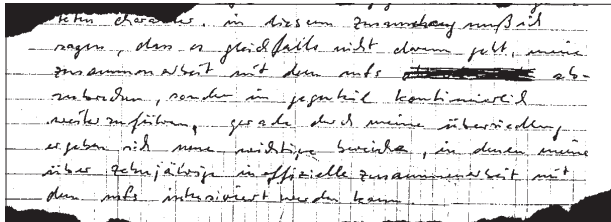 teten charakter. in diesem zusammenhang muß ich
sagen, dass es gleichfalls nicht darum geht, meine
zusammenarbeit mit dem mfs ab-
zubrechen, sondern im gegenteil kontinuierlich
weiterzuführen, gerade durch meine übersiedlung
ergeben sich neue wichtige bereiche, in denen meine
über zehnjährige inoffizielle zusammenarbeit mit
dem mfs intensiviert werden kann.